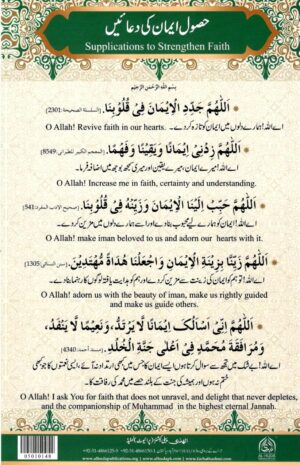 حصولِ ایمان کی دعائیں
Supplications to Strengthen Faith
بِسْمِ اللهِ الرَّحْمٰنِ الرَّحِيْمِ
اَللّٰهُمَّ جَدِّدِ الْاِيْمَانَ فِيْ قُلُوْبِنَا. [السلسلة الصحيحة:2301]
اے اللہ! ہمارے دلوں میں ایمان کو تازہ کر دے۔ O Allah! Revive faith in our hearts.
اَللّٰهُمَّ زِدْنِيْ اِيْمَانًا وَيَقِيْنًا وَفَهْمًا. [المعجم الكبير للطبراني:8549]
اے اللہ! میرے ایمان، میرے یقین اور میری سمجھ بوجھ میں اضافہ فرما۔
O Allah! Increase me in faith, certainty and understanding.
اَللّٰهُمَّ حَبِّبْ اِلَيْنَا الْاِيْمَانَ وَزَيِّنْهُ فِيْ قُلُوْبِنَا. [صحيح الادب المفرد:541]
اے اللہ! ایمان کو ہمارے لیے محبوب بنا دے اور اسے ہمارے دلوں میں مزین کر دے۔
O Allah! make iman beloved to us and adorn our hearts with it.
اَللّٰهُمَّ زَيِّنَّا بِزِيْنَةِ الْاِيْمَانِ وَاجْعَلْنَا هُدَاةً مُّهْتَدِيْنَ. [سنن النسائي:1305]
اے اللہ! تو ہم کو ایمان کی زینت سے مزین کر دے اور ہم کو ہدایت یافتہ لوگوں کا رہنما بنا دے۔
O Allah! adorn us with the beauty of iman, make us rightly guided
and make us guide others.
اَللّٰهُمَّ اِنِّيْ اَسْاَلُكَ اِيْمَانًا لَّا يَرْتَدُّ، وَنَعِيْمًا لَّا يَنْفَدُ،
وَمُرَافَقَةَ مُحَمَّدٍ فِيْ اَعْلٰى جَنَّةِ الْخُلْدِ. [مسند أحمد:4340]
اے اللہ! بے شک میں تجھ سے سوال کرتا ہوں ایسے ایمان کا جس میں کبھی ارتداد نہ آئے، ایسی نعمتوں کا جو کبھی
ختم نہ ہوں اور ہمیشہ کی جنت کے بلند حصے میں محمد کی رفاقت کا۔
O Allah! I ask You for faith that does not unravel, and delight that never depletes,
and the companionship of Muhammad in the highest eternal Jannah.
05010148